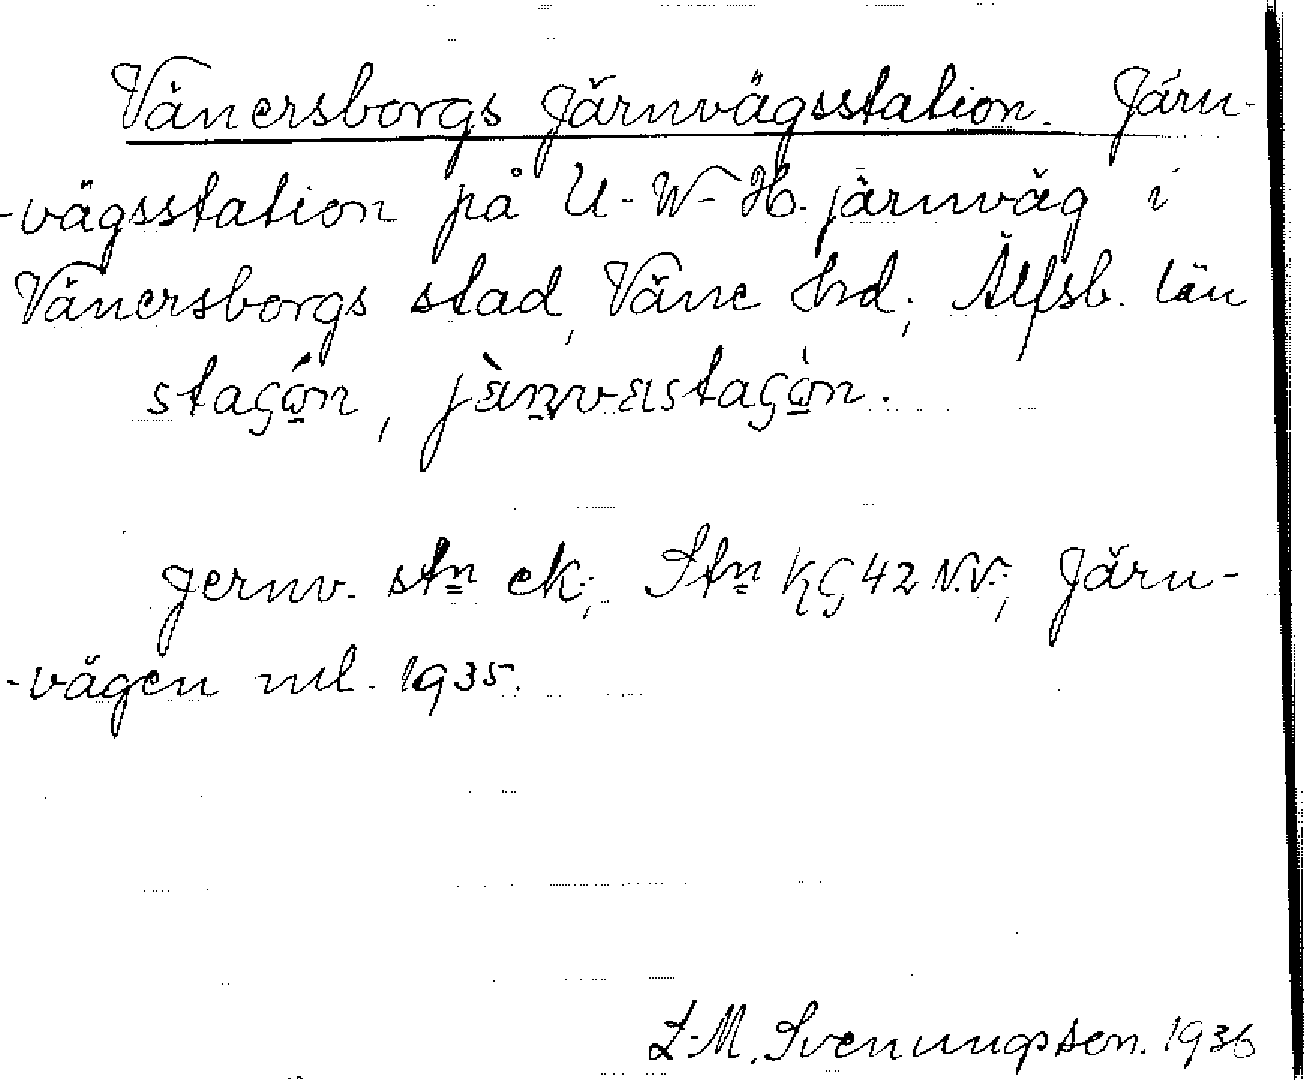 Vänersborgs Järnvägsstation. Järn-
-vägsstation på U-W-H. järnväg i
Vänersborgs stad, Väne hd; Älfsb. län
Jernv. stn ek; Stn KG 42 N.V.; Järn-
-vägen ml. 1935.
L-M. Svenungsson. 1936